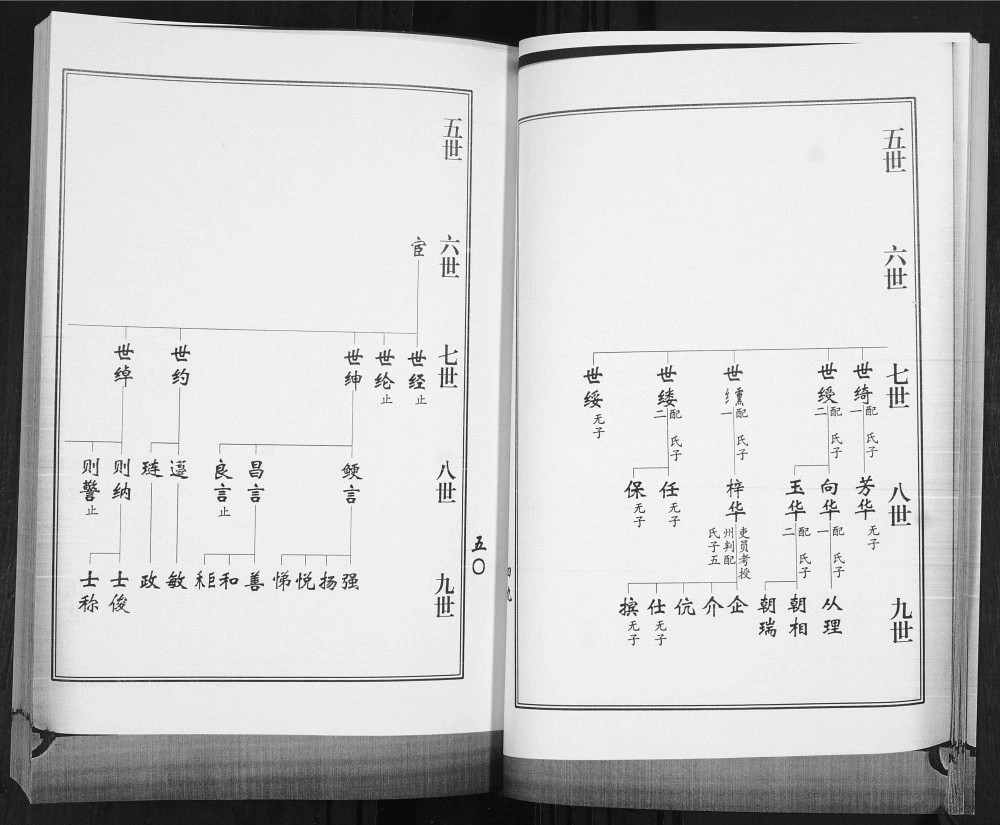 五世
六世
七世
八世
九世
世绮
一
配 氏子
芳华
无子
世绶
二
配 氏子
向华
一
配 氏子
从理
玉华
二
配 氏子
朝相
朝瑞
世𫄸
一
配 氏子
梓华
吏员考授
州判配
氏子五
企
介
伉
仕
无子
无子
世缕
二
配 氏子
任
无子
保
无子
世绥
无子
四九
五〇
五世
六世
七世
八世
九世
世经
止
世纶
止
世绅
鲠言
强
扬
悦
悌
昌言
善
和
良言
止
世约
敏
琏
政
世绰
则纳
士俊
士称
则警
止